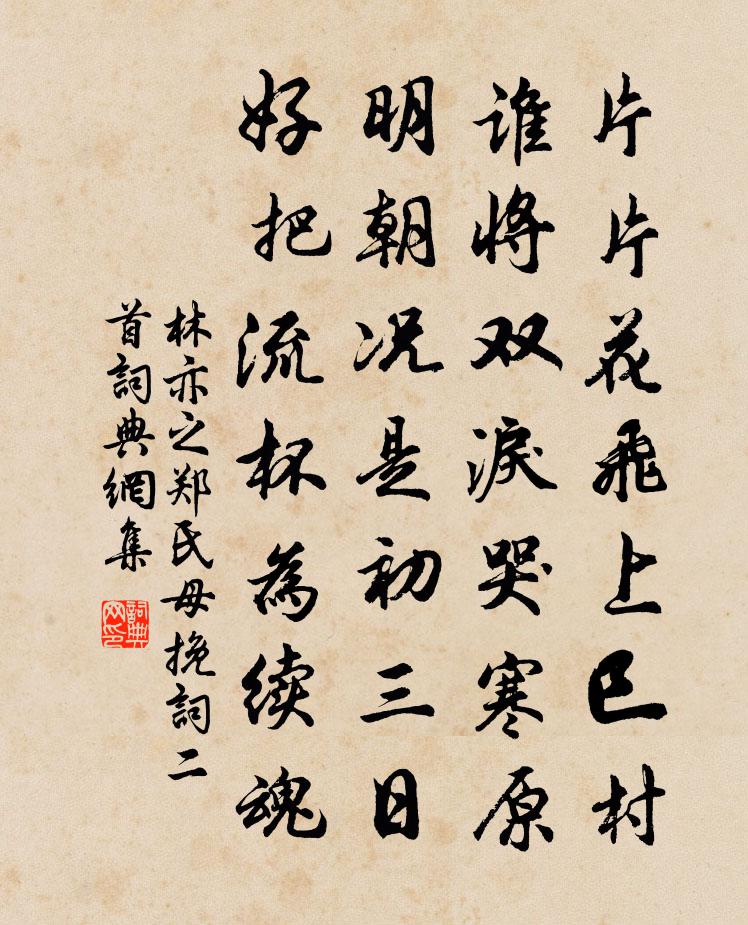 片片花飛上巳村
谁将双淚哭寒原
明朝况是初三日
好把流杯為续魂
林亦之郑氏母挽詞二
首詞典網集
詞典
网印